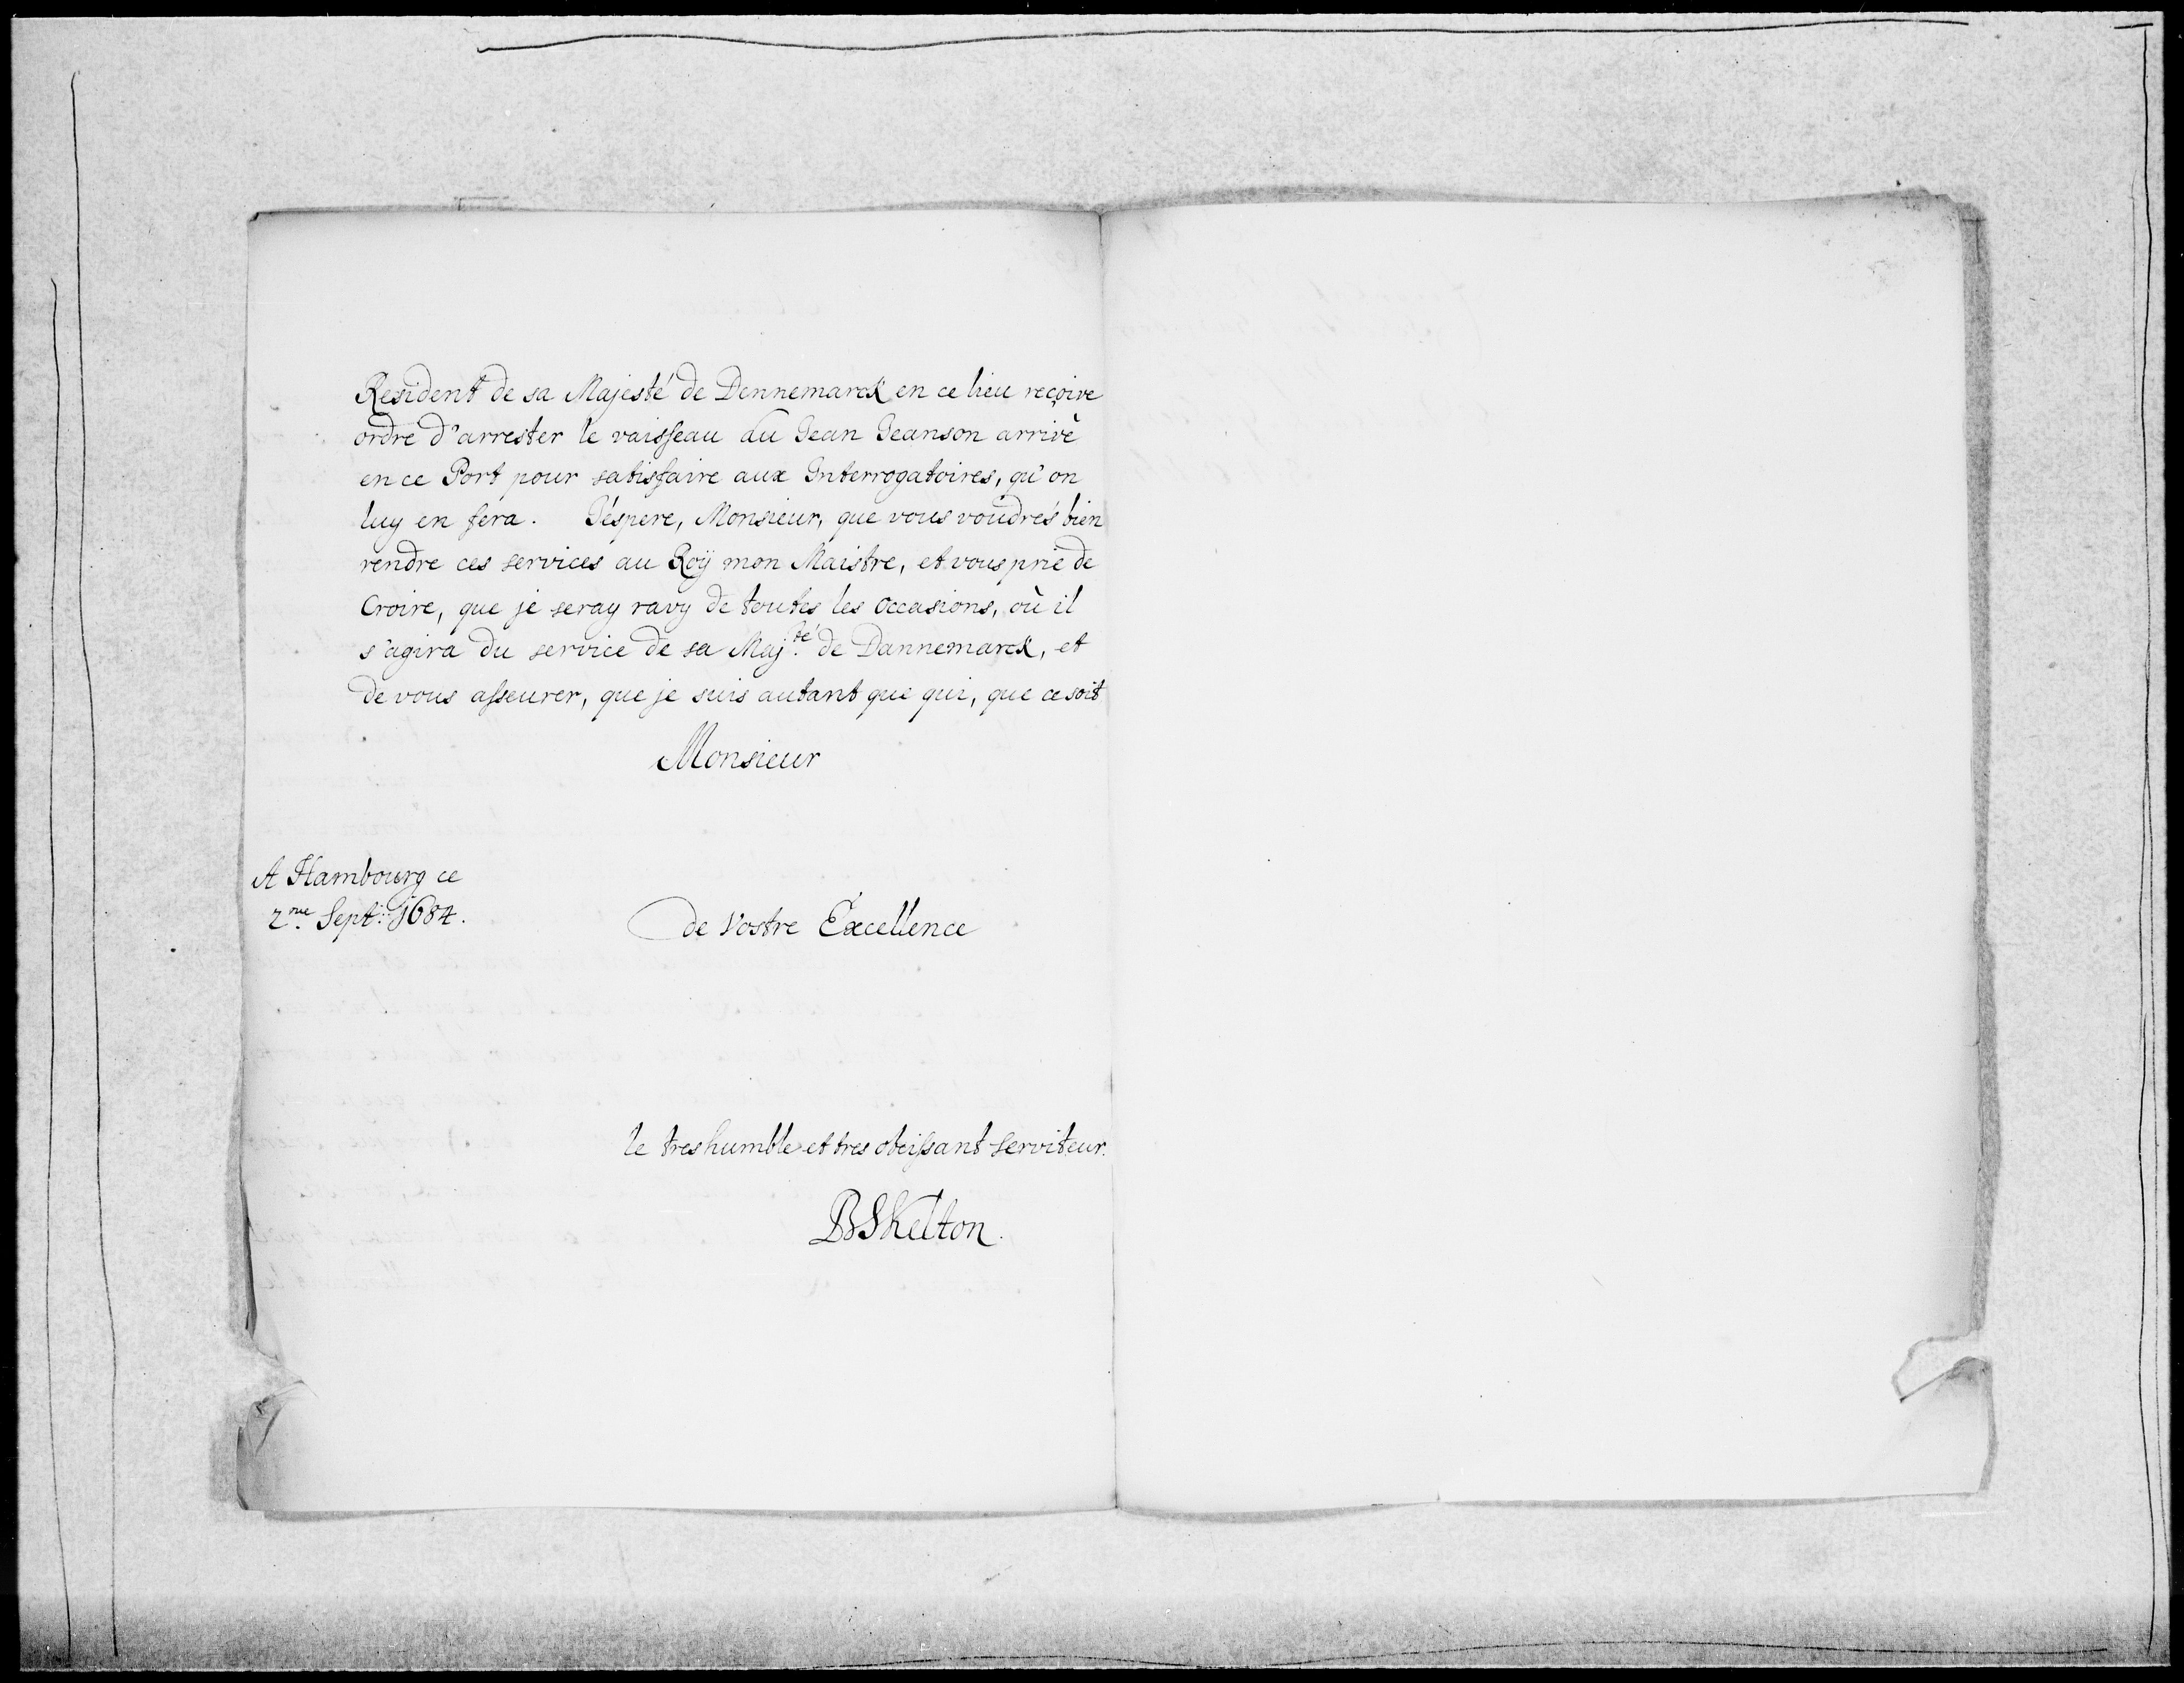 Resident de sa Majesté de Dennemarck en ce lieu reçoive
ordre d'arrester le vaisseau du Jean Jeanson arrivé
en ce Port pour satisfaire aux Interrogatoires, qu'on
luy en fera. J'éspere, Monsieur, que vous voudrés bien
rendre ces services au Roÿ mon Maistre, et vous prie de
Croire, que je seray ravy de toutes les occasions, où il
s'agira du service de sa Maj.té de Dannemarck, et
de vous asseurer, que je suis autant que qui, que ce soit
Monsieur
A Hambourg ce
2.me Sept: 1684.
de Vostre Excellence
le tres humble et tres obeissant serviteur.
BSkelton.